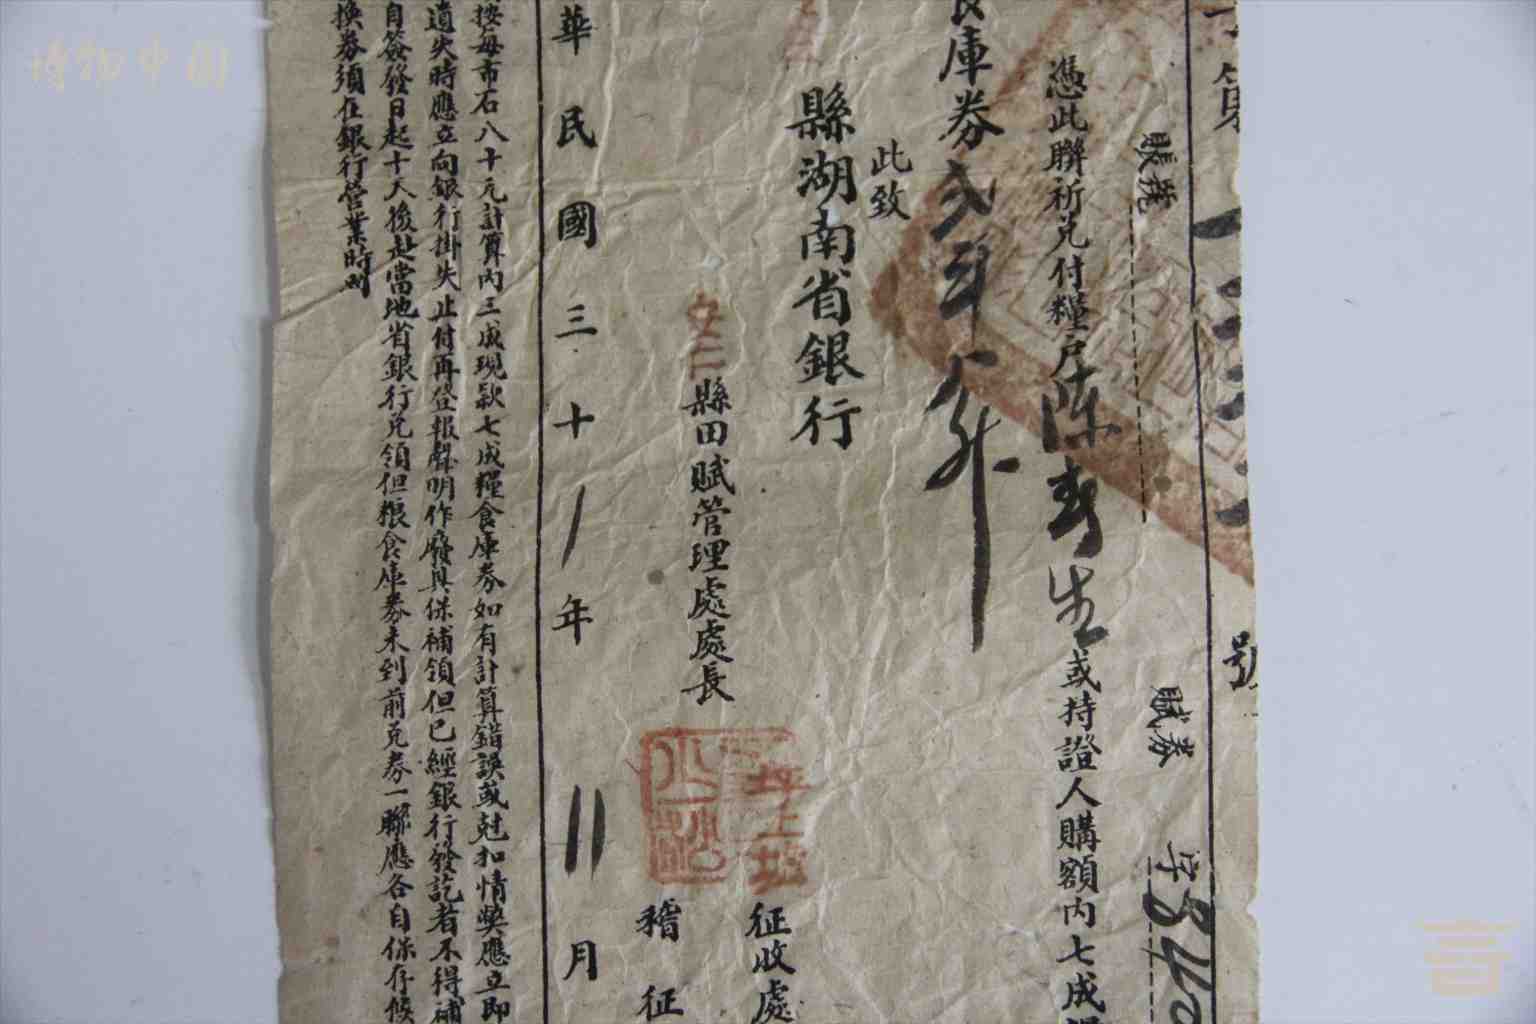 號
賦券
字340
憑此聯祈兌付糧戶陳壽生或持證人購額內七成
庫券貳斗八升
此致
縣湖南省銀行
征收處
縣田賦管理處處長
稽征
華民國三十一年11月
按每市石八十元計算內三成現款七成糧食庫券如有計算錯誤或尅扣情獘應立即
遺失時應立向銀行掛失止付再登報聲明作廢具保補領但已經銀行發訖者不得補
自簽發日起十天後赴當地省銀行兌領但糧食庫券未到前兌券一聯應各自保存候
換券須在銀行營業時間
博物中国